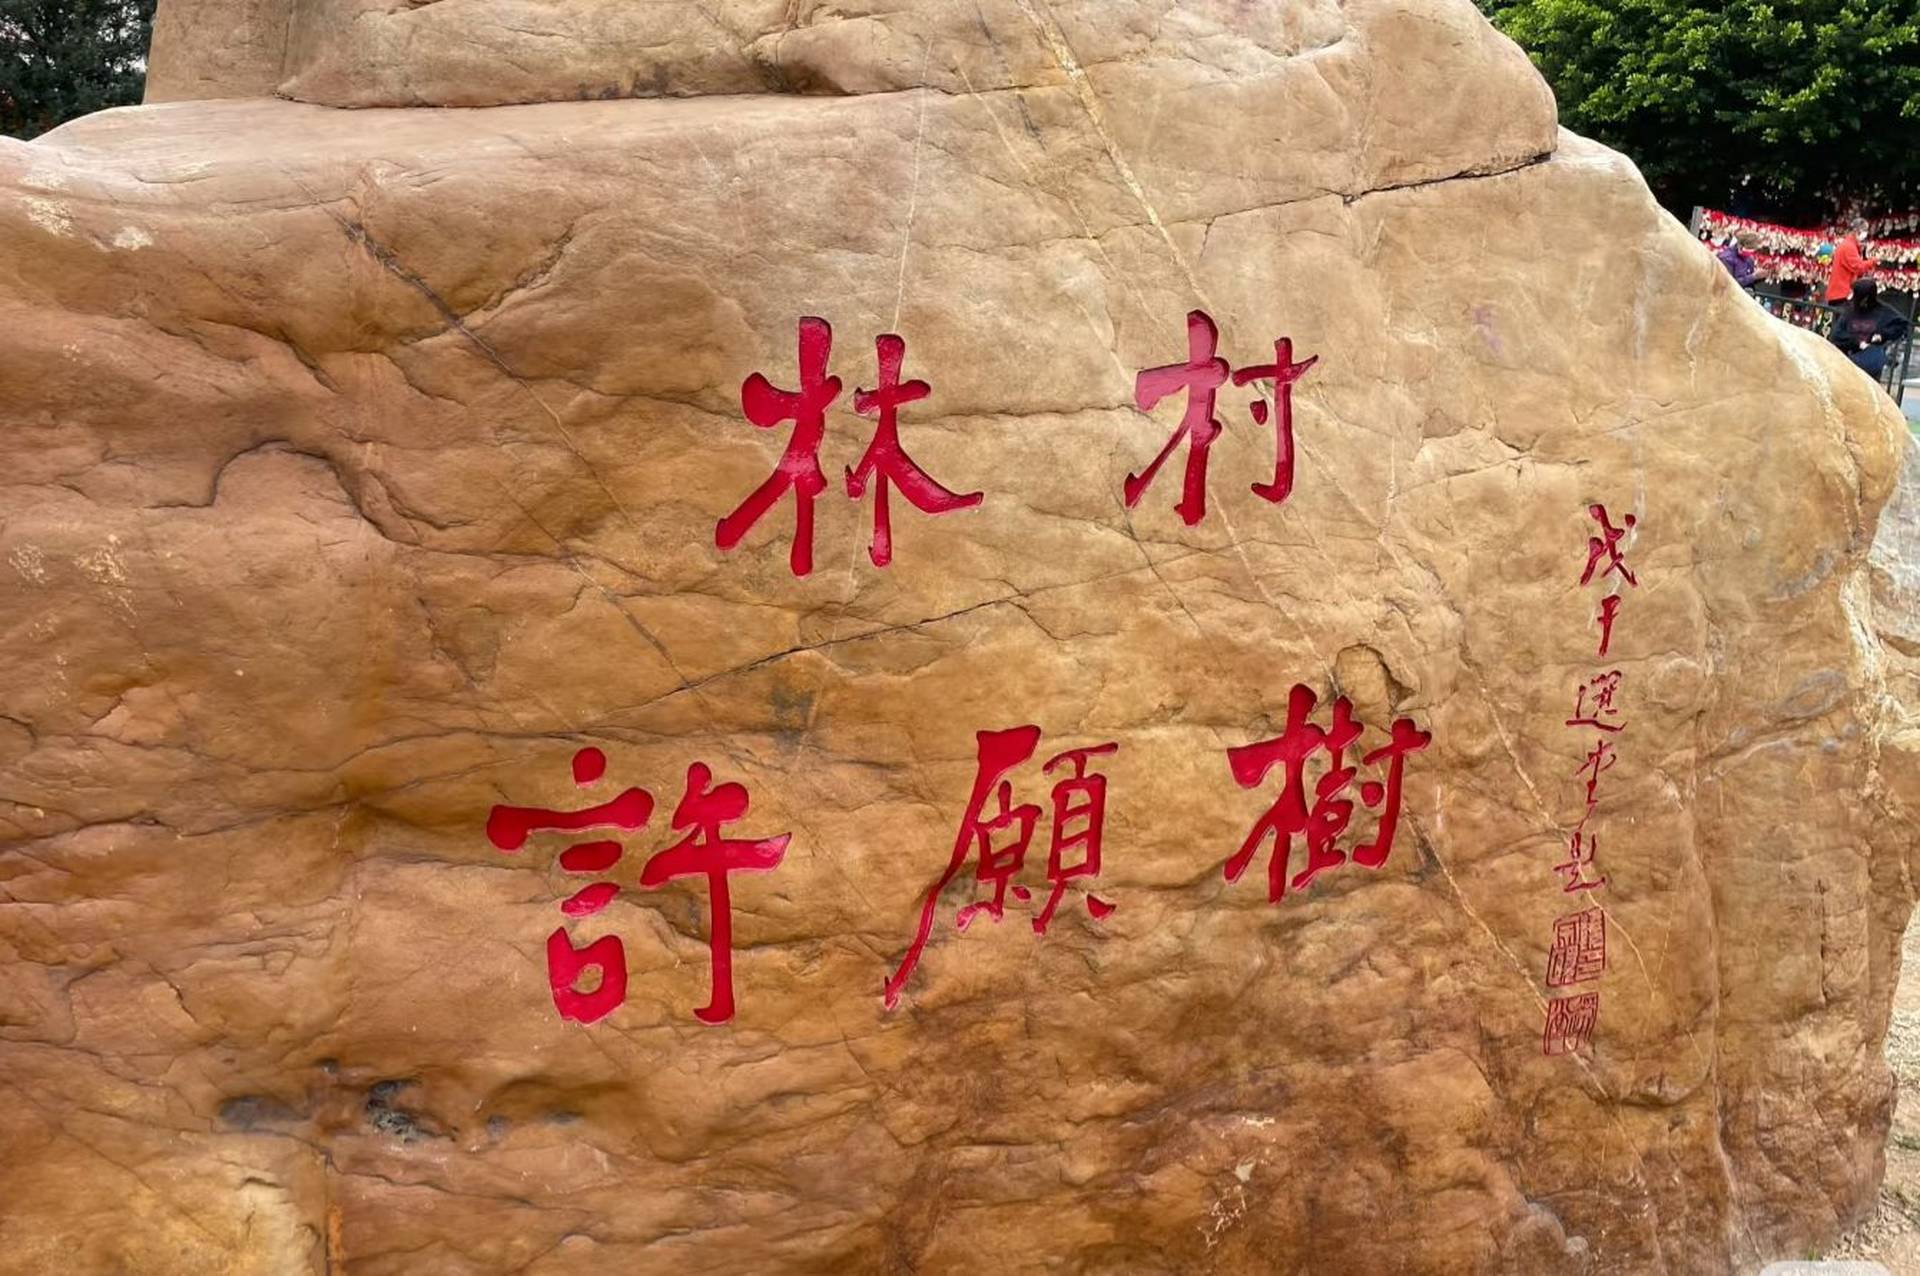 林村
許願樹
戊子選堂題